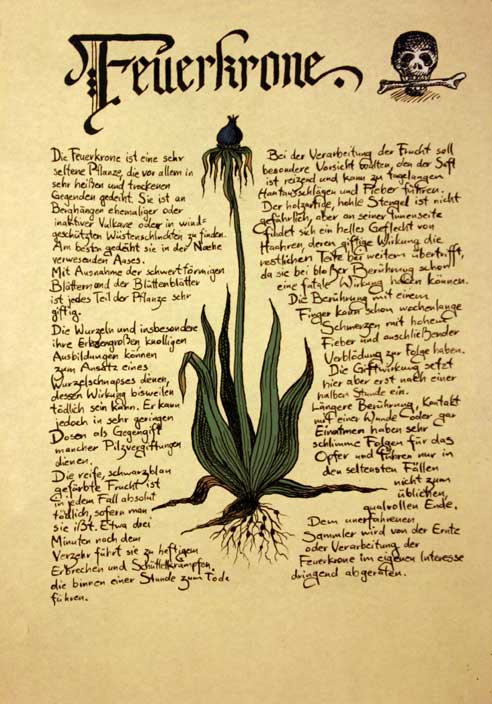 Feuerkrone.
Die Feuerkrone ist eine sehr
seltene Pflanze, die vor allem in
sehr heißen und trockenen
Gegenden gedeiht. Sie ist an
Berghängen ehemaliger oder
inaktiver Vulkane oder in wind-
geschützten Wüstenschluchten zu finden.
Am besten gedeiht sie in der Naehe
verwesenden Aases.
Mit Ausnahme der schwertförmigen
Blätter und der Blütenblätter
ist jedes Teil der Pflanze sehr
giftig.
Die Wurzeln und insbesondere
ihre Erbsengroßen knolligen
Ausbildungen können
zum Ansatz eines
Wurzelschnapses dienen,
dessen Wirkung bisweilen
tödlich sein kann. Er kann
jedoch in sehr geringen
Dosen als Gegengift
mancher Pilzvergiftungen
dienen.
Die reife, schwarzblau
gefärbte Frucht ist
in jedem Fall absolut
tödlich, sofern man
sie ißt. Etwa drei
Minuten nach dem
Verzehr führt sie zu heftigem
Erbrechen und Schüttelkrämpfen,
die binnen einer Stunde zum Tode
führen.
Bei der Verarbeitung der Frucht soll
besondere Vorsicht walten, den der Saft
ist reizend und kann zu tagelangen
Hautausschlägen und Fieber führen.
Der holzartige, hohle Stengel ist nicht
gefährlich, aber an seiner Innenseite
findet sich ein helles Geflecht von
Haahren, deren giftige Wirkung die
restlichen Teile bei weitem übertrifft,
da sie bei bloßer Berührung schon
eine fatale Wirkung haben können.
Die Berührung mit einem
Finger kann schon wochenlange
Schmerzen mit hohem
Fieber und anschließender
Verblödung zur Folge haben.
Die Giftwirkung setzt
hier aber erst nach einer
halben Stunde ein.
Längere Berührung, Kontakt
mit einer Wunde oder gar
Einatmen haben sehr
schlimme Folgen für das
Opfer und führen nur in
den seltensten Fällen
nicht zum
üblichen,
qualvollen Ende.
Dem unerfahrenen
Sammler wird von der Ernte
oder Verarbeitung der
Feuerkrone im eigenen Interesse
dringend abgeraten.